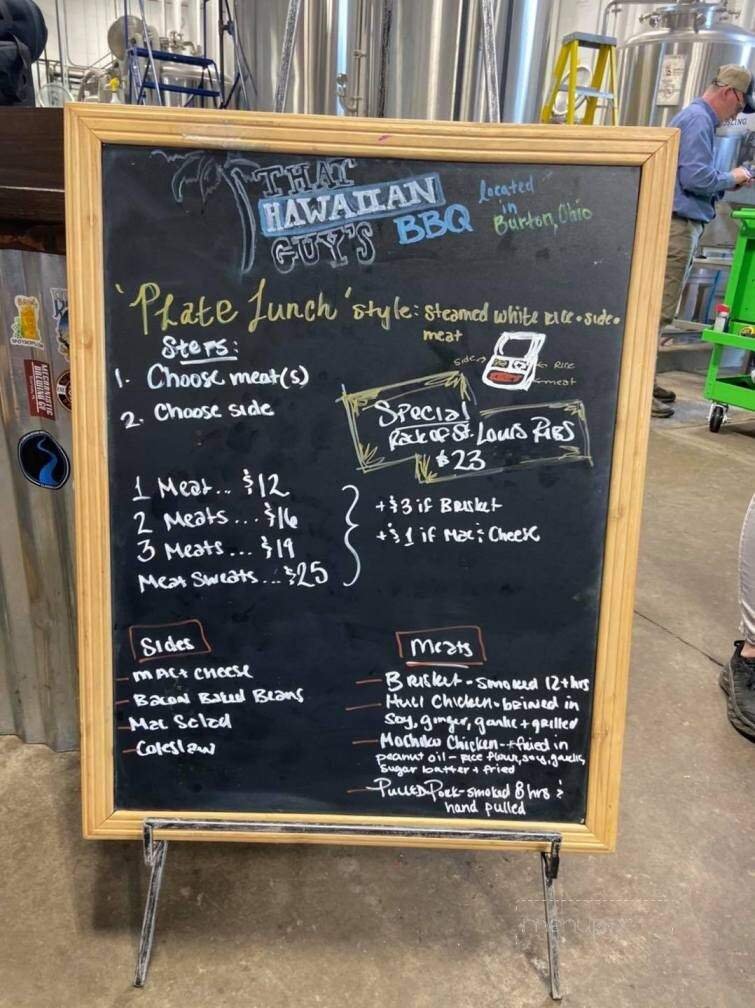 THAT
HAWAIIAN
GUY'S BBQ
located
in
Burton, Ohio
"Plate Lunch" style: steamed white rice • side •
meat
Steps:
1. Choose meat(s)
2. Choose side
side
Rice
meat
Special
Rack of St. Louis Ribs
$23
1 Meat... $12
2 Meats... $16
3 Meats... $19
Meat Sweats... $25
+$3 if Brisket
+$1 if Mac & Cheese
Sides
- Mac + cheese
- Bacon Baked Beans
- Mac Salad
- Coleslaw
Meats
- Brisket - smoked 12+ hrs
- Huli Chicken - brined in
soy, ginger, garlic + grilled
- Mochiko Chicken - + fried in
peanut oil - rice flour, soy, garlic,
sugar batter + fried
- Pulled Pork - smoked 8 hrs &
hand pulled
menupix